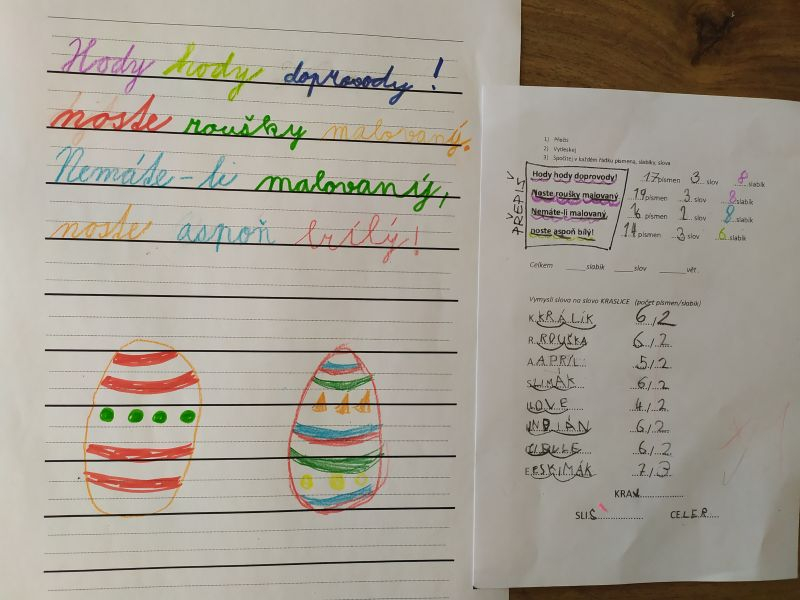 Hody hody doprovody!
noste roušky malovaný.
Nemáte-li malovaný,
noste aspoň bílý!
1) Přečti
2) Vytleskej
3) Spočítej v každém řádku písmena, slabiky, slova
Hody hody doprovody! 17 písmen 3 slov 8 slabik
Noste roušky malovaný 19 písmen 3 slov 8 slabik
Nemáte-li malovaný, 16 písmen 2 slov 8 slabik
noste aspoň bílý! 14 písmen 3 slov 6 slabik
Celkem ______slabik ______slov ________vět.
Vymysli slova na slovo KRASLICE (počet písmen/slabik)
K KRÁLÍK 6/2
R ROUŠKA 6/2
A APRÍL 5/2
S SLIMÁK 6/2
LOVE 4/2
INDIÁN 6/2
CIBULE 6/2
E ESKIMÁK 7/3
KRAV
SLIS
CELER